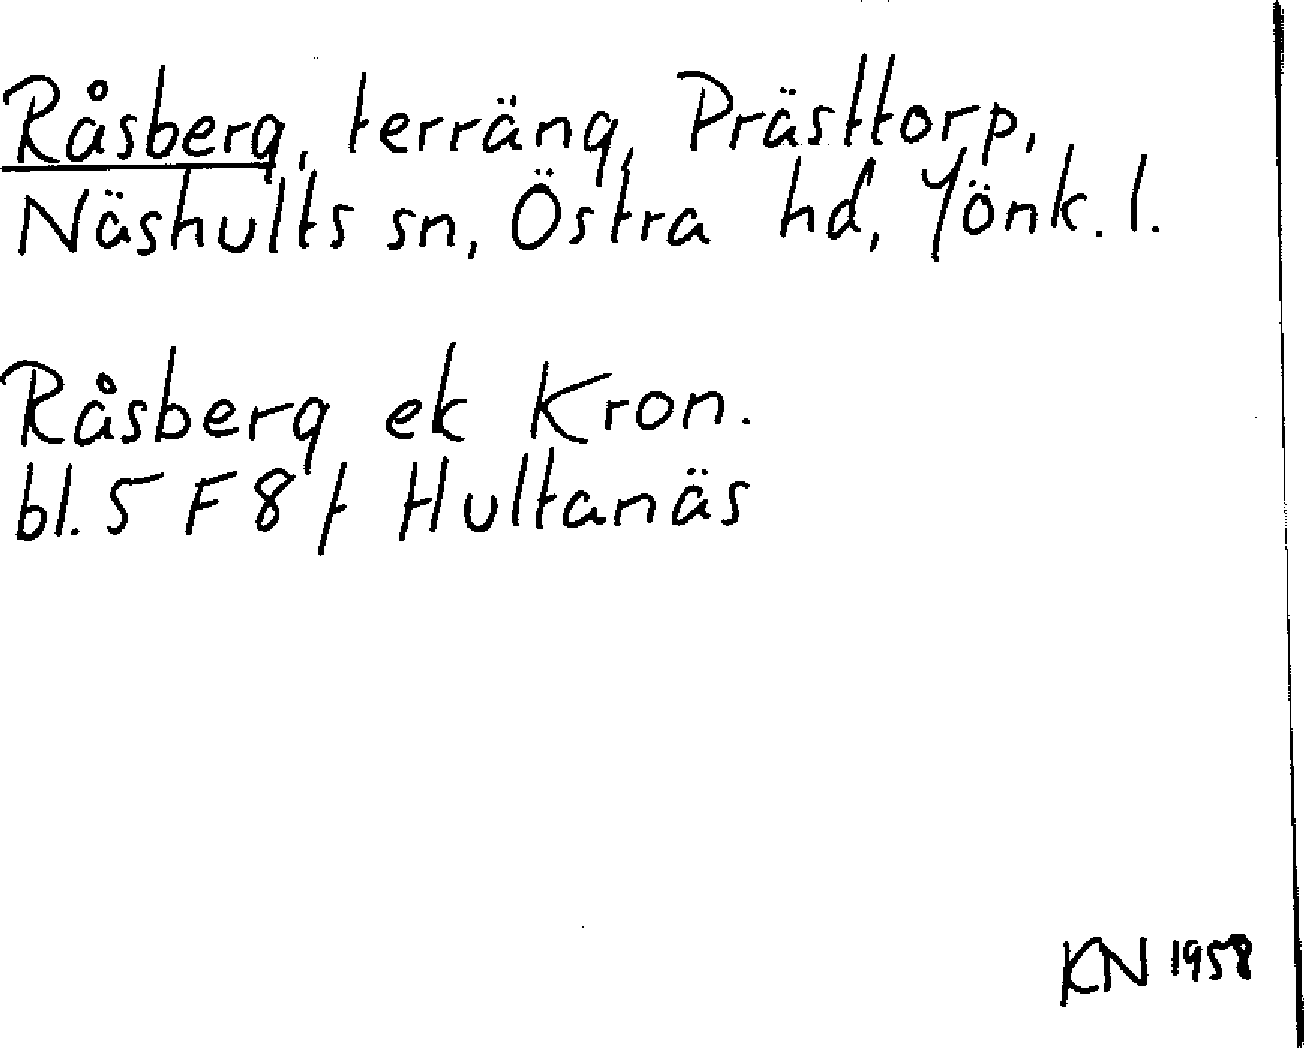 Råsberg, terräng, Prästtorp,
Näshults sn, Östra hd, Jönk. l.
Råsberg ek Kron.
bl. 5 F 8 f Hultanäs
KN 1958